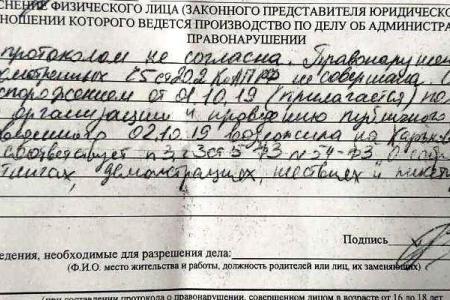 СНЕНИЕ ФИЗИЧЕСКОГО ЛИЦА (ЗАКОННОГО ПРЕДСТАВИТЕЛЯ ЮРИДИЧЕСКО
НОШЕНИИ КОТОРОГО ВЕДЕТСЯ ПРОИЗВОДСТВО ПО ДЕЛУ ОБ АДМИНИСТРА
ПРАВОНАРУШЕНИИ
протоколом не согласна. Правонаруш
ч5 ст 20.2 КоАП РФ не совершала. С
споряжением от 01.10.19 (прилагается) по
организации и проведению публичного
02.10.19 на
соответствует п.3, ст 5 ФЗ N 54-ФЗ "О соб
тингах, демонстрациях, шествиях и пикет
Подпись
едения, необходимые для разрешения дела:
(Ф.И.О. место жительства и работы, должность родителей или лиц, их заменяющих)
(при составлении протокола о правонарушении, совершенном лицом в возрасте от 16 до 18 лет